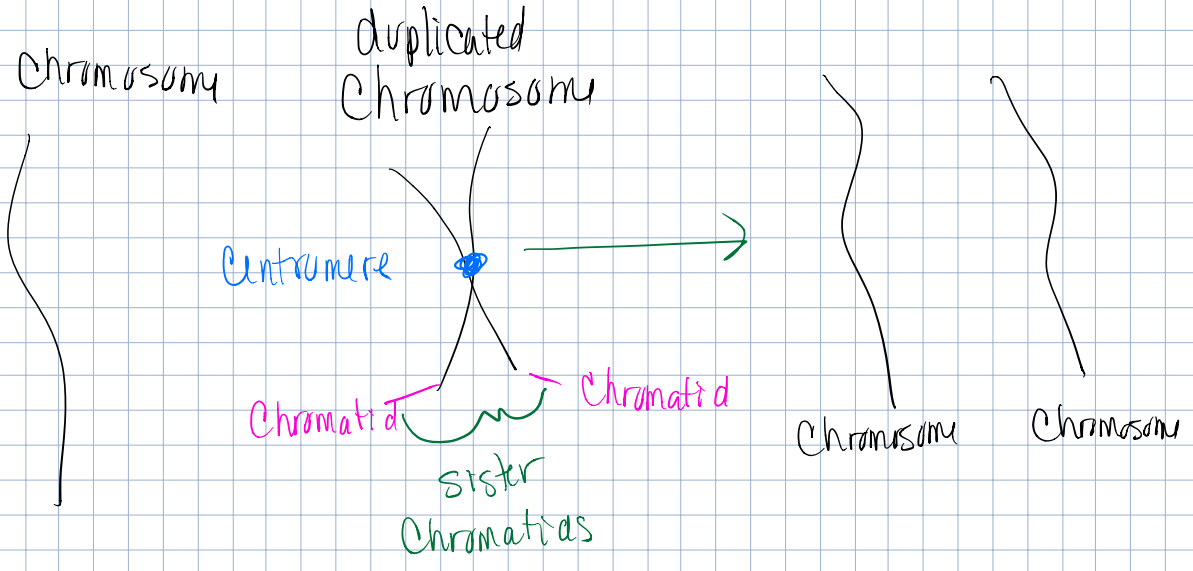 Chromosome
duplicated
Chromosome
Centromere
Chromatid
Chromatid
sister
Chromatids
Chromosome
Chromosome